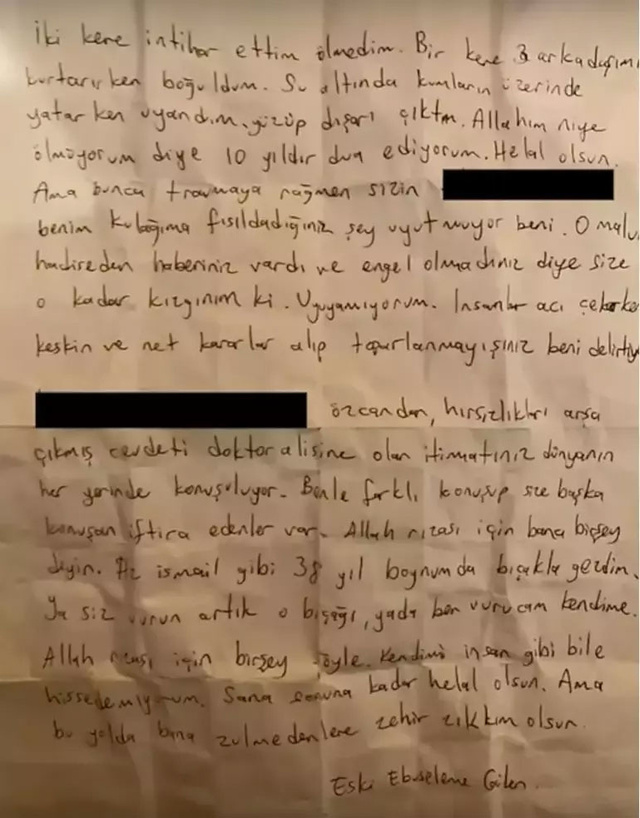 İki kere intihar ettim ölmedim. Bir kere 3 arkadaşımı
kurtarırken boğuldum. Su altında kumların üzerinde
yatarken uyandım, yüzüp dışarı çıktım. Allahım niye
ölmüyorum diye 10 yıldır dua ediyorum. Helal olsun.
Ama bunca travmaya rağmen sizin
benim kulağıma fısıldadığınız şey uyutmuyor beni. O malu
hadiseden haberiniz vardı ve engel olmadınız diye size
o kadar kızgınım ki. Uyuyamıyorum. İnsanlar acı çekerke
keskin ve net kararlar alıp toparlanmayışınız beni delirtiy
özcandan, hırsızlıkları arşa
çıkmış cevdeti doktor alisine olan itimatınız dünyanın
her yerinde konuşuluyor. Benle farklı konuşup size başka
konuşan iftira edenler var. Allah rızası için bana birşey
diyin. Hz ismail gibi 38 yıl boynumda bıçakla gezdim.
Ya siz vurun artık o bıçağı, yada ben vurucam kendime.
Allah rızası için birşey söyle. Kendimi insan gibi bile
hissedemiyorum. Sana sonuna kadar helal olsun. Ama
bu yolda bana zulmedenlere zehir zıkkım olsun.
Eski Ebuseleme Gülen.